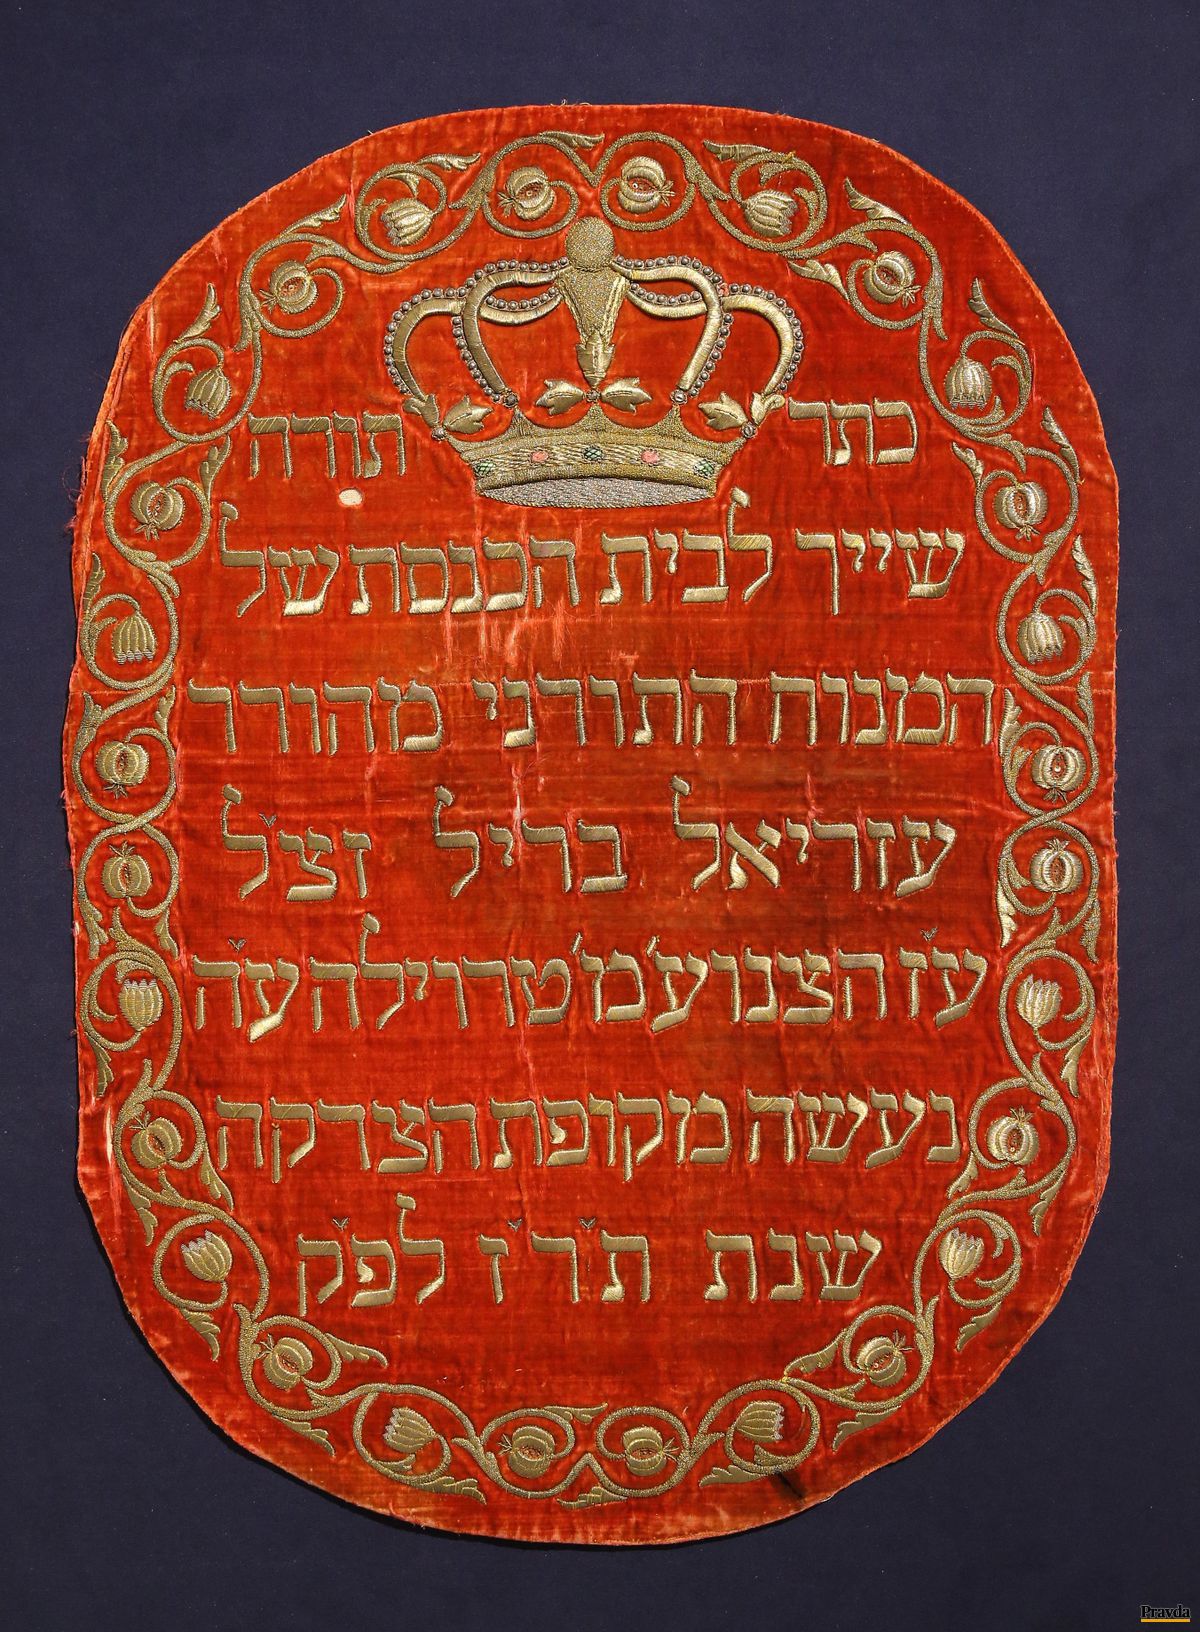 כתר תורה
שייך לבית הכנסת של
המנוח התורני מהורר
עזריאל בריל זצ״ל
ע״ז הצנוע׳ מ׳ טרוילה ע״ה
נעשה מקופת הצדקה
שנת ת״ר״ז לפ״ק
Pravda